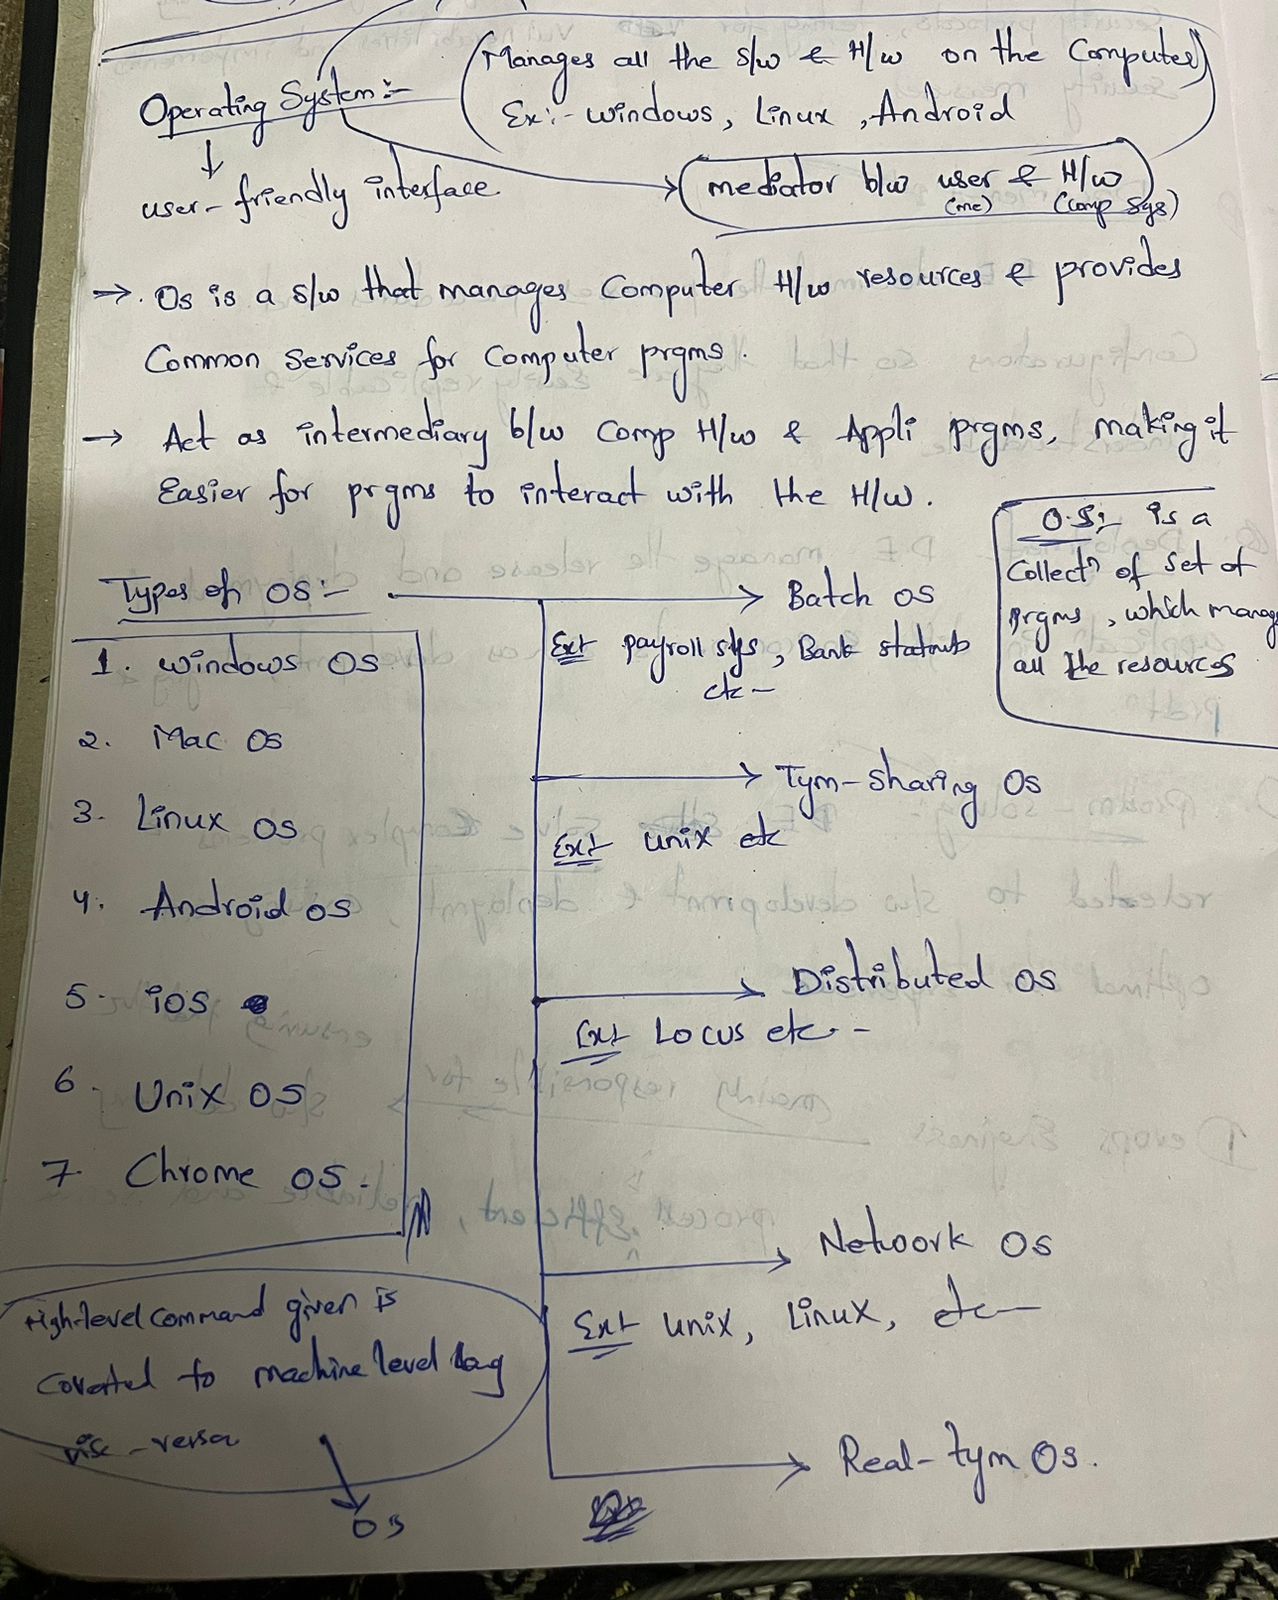 Operating System:-
(Manages all the s/w & H/w on the Computer)
Ex:- windows, Linux, Android
↓
user-friendly interface
→ (mediator b/w user & H/w)
(me) (Comp Sys)
→. Os is a s/w that manages Computer H/w resources & provides
Common Services for Computer prgms.
→ Act as intermediary b/w Comp H/w & Appli prgms, making it
Easier for prgms to interact with the H/w.
O.S:- is a
Collectn of set of
prgms, which manage
all the resources
Types of OS:-
1. windows OS
2. Mac OS
3. Linux OS
4. Android OS
5. iOS
6. Unix OS
7. Chrome OS.
→ Batch OS
Ex:- payroll sys, Bank
etc -
→ Tym-sharing OS
Ex:- unix etc
→ Distributed OS
Ex:- Locus etc--
→ Network OS
Ex:- unix, Linux, etc—
→ Real-tym OS.
High-level command given is
coverted to machine level lang
vise-versa
OS